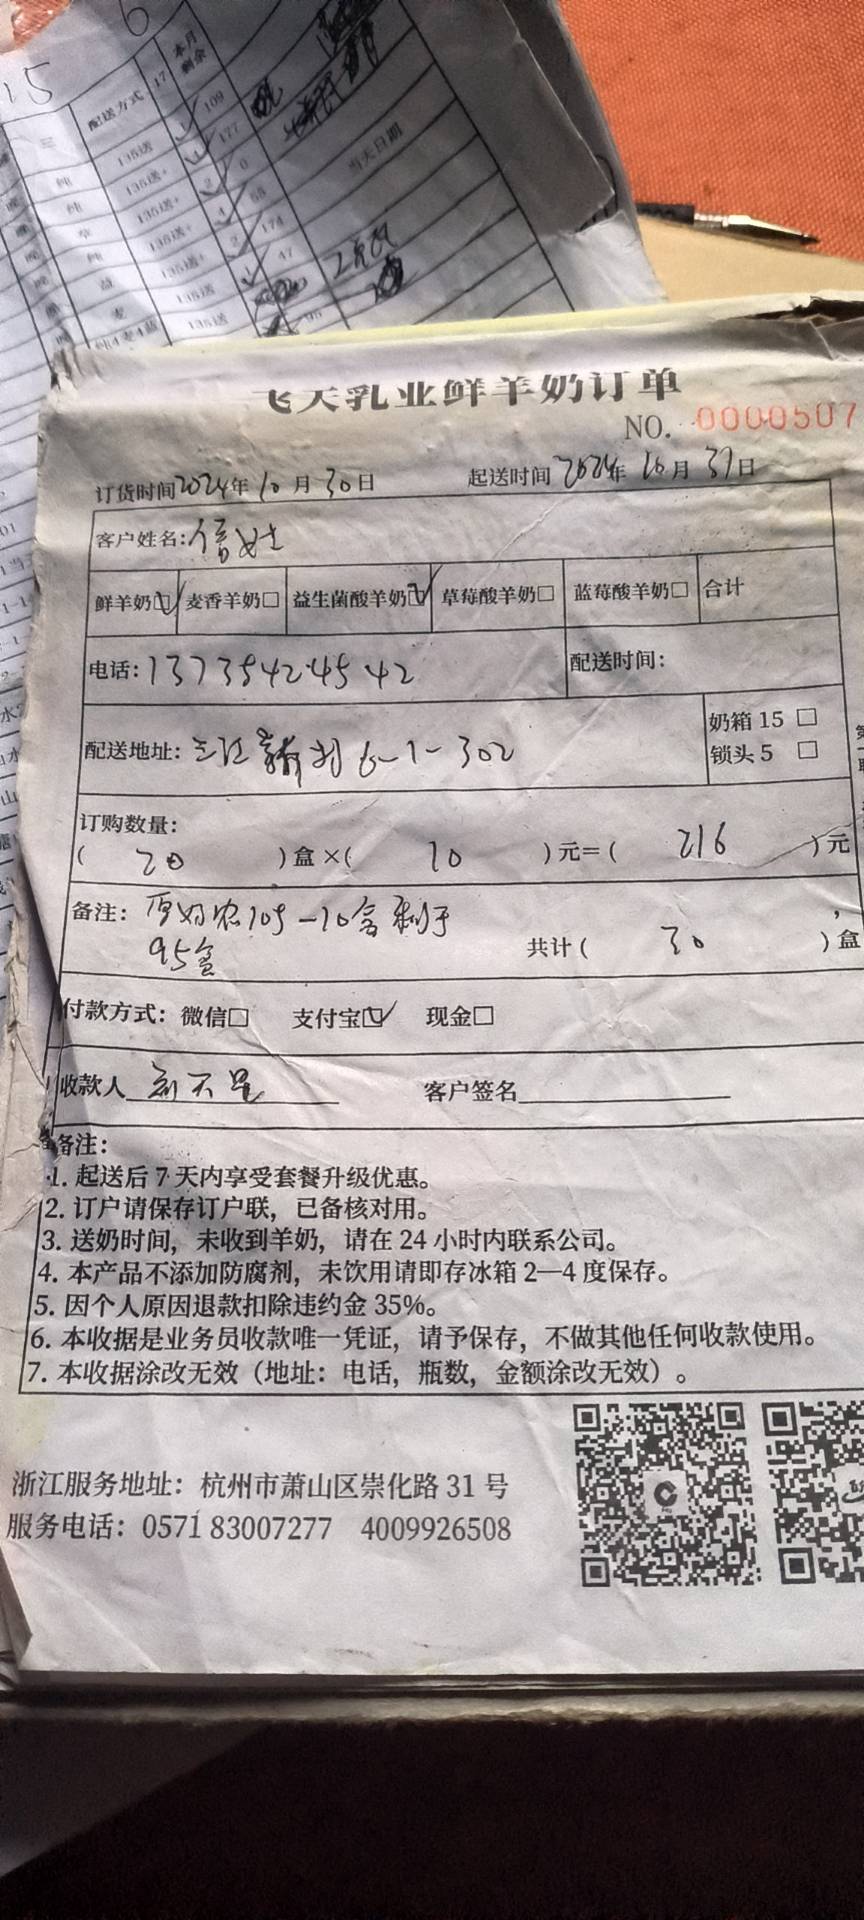 15
6
配送方式
17
本月剩余
三
纯
135送
109
纯
135送+
177
草
135送+
0
纯
135送+
68
益
135送+
174
麦
135送
47
135送
当天日期
飞天乳业鲜羊奶订单
NO. 0000507
订货时间2024年10月30日 起送时间2024年10月31日
客户姓名:
鲜羊奶☑ 麦香羊奶□ 益生菌酸羊奶☑ 草莓酸羊奶□ 蓝莓酸羊奶□ 合计
电话:13735424542 配送时间:
奶箱 15 □
配送地址: 三江 6-1-302
锁头 5 □
订购数量:
( 20 )盒×( 10 )元=( 216 )元
备注: 105-10盒剩于
95盒
共计( 30 )盒
付款方式: 微信□ 支付宝☑ 现金□
收款人 客户签名
备注:
1. 起送后 7 天内享受套餐升级优惠。
2. 订户请保存订户联，已备核对用。
3. 送奶时间，未收到羊奶，请在 24 小时内联系公司。
4. 本产品不添加防腐剂，未饮用请即存冰箱 2—4 度保存。
5. 因个人原因退款扣除违约金 35%。
6. 本收据是业务员收款唯一凭证，请予保存，不做其他任何收款使用。
7. 本收据涂改无效（地址：电话，瓶数，金额涂改无效）。
浙江服务地址：杭州市萧山区崇化路 31 号
服务电话：0571 83007277 4009926508